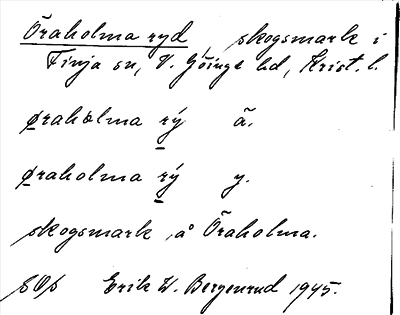 Öraholma ryd skogsmark i
Finja sn, V. Göinge hd, Krist. l.
øraholma rý ä.
øraholma rý y.
skogsmark å Öraholma.
SOs Erik W. Bergenrud 1945.